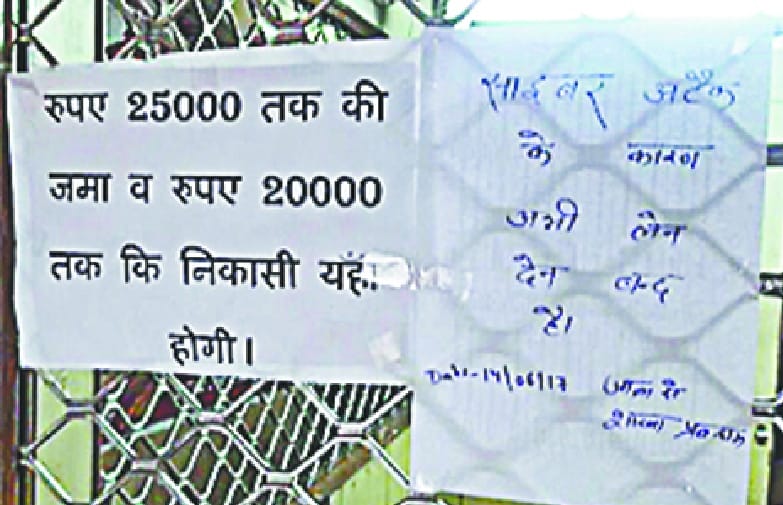 रुपए 25000 तक की
जमा व रुपए 20000
तक कि निकासी यहाँ
होगी।
साइबर अटैक
के कारण
अभी लेन
देन बन्द
है।
Date-14/06/17 आज्ञा से
शाखा प्रबन्धक